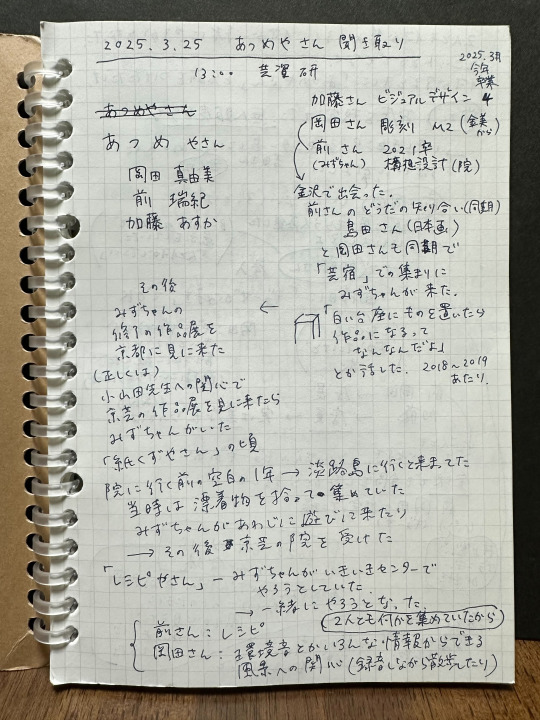 2025.3.25 あつめやさん 聞き取り
13:00 芸資研
2025.3月
今年
卒業
あつめやさん
あつめ やさん
岡田 真由美
前 瑞紀
加藤 あすか
加藤さん ビジュアルデザイン 4
岡田さん 彫刻 M2 (金美から)
前さん 2021卒
(みずちゃん) 構想設計(院)
金沢で出会った.
前さんのどうだの知り合い(同期)
島田さん(日本画)
と岡田さんも同期で
「芸宿」での集まりに
みずちゃんが来た.
「白い台座にものを置いたら
作品になるって
なんなんだよ」
とか話した. 2018〜2019
あたり.
その後 ←
みずちゃんの
修了の作品展を
京都に見に来た
(正しくは)
小山田先生への関心で
京芸の作品展を見に来たら
みずちゃんがいた
「紙くずやさん」の頃
院に行く前の空白の1年 → 淡路島に行くと決まってた
当時は漂着物を拾って集めていた
みずちゃんがあわじに遊びに来たり
→ その後 京芸の院を受けた
「レシピやさん」— みずちゃんがいきいきセンターで
やろうとしていた.
→ 一緒にやろうとなった.
2人とも何かを集めていたから
前さん: レシピ
岡田さん: 環境音とかいろんな情報からできる
風景への関心(録音しながら散歩したり)